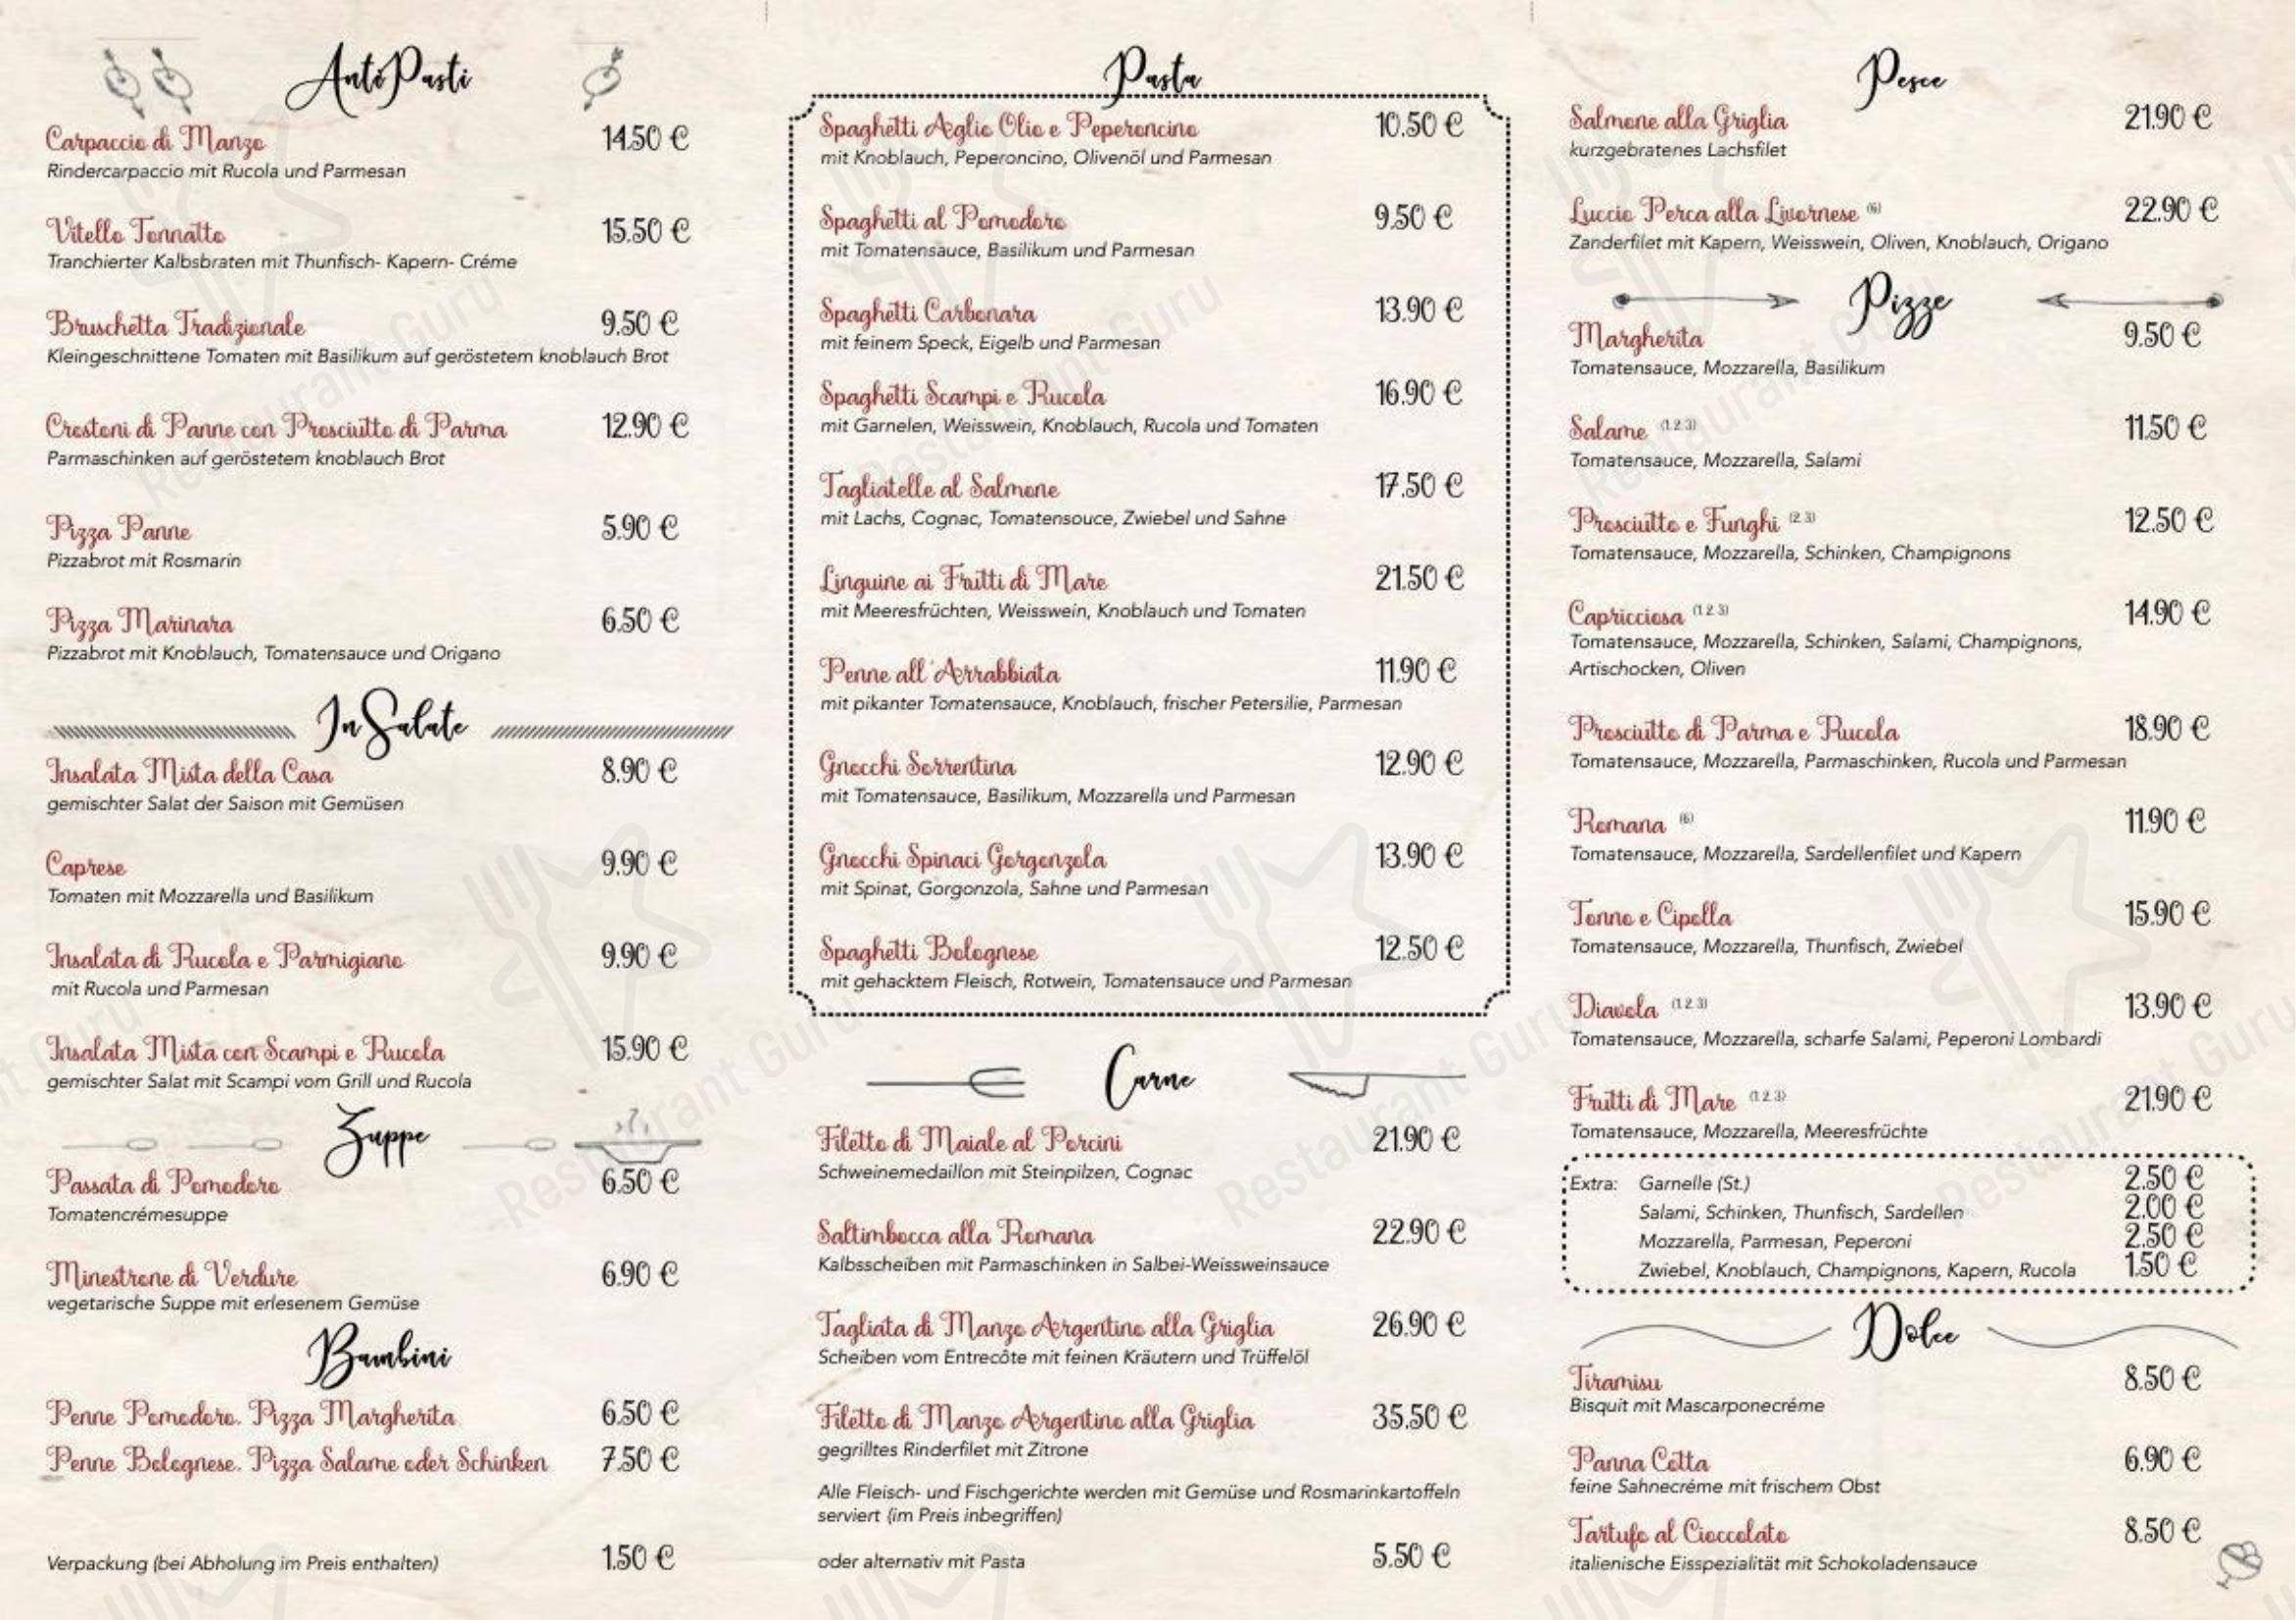 AntiPasti
Carpaccio di Manzo 14.50 €
Rindercarpaccio mit Rucola und Parmesan
Vitello Tonnatto 15.50 €
Tranchierter Kalbsbraten mit Thunfisch- Kapern- Créme
Bruschetta Tradizionale 9.50 €
Kleingeschnittene Tomaten mit Basilikum auf geröstetem knoblauch Brot
Crostoni di Panne con Prosciutto di Parma 12.90 €
Parmaschinken auf geröstetem knoblauch Brot
Pizza Panne 5.90 €
Pizzabrot mit Rosmarin
Pizza Marinara 6.50 €
Pizzabrot mit Knoblauch, Tomatensauce und Origano
InSalate
Insalata Mista della Casa 8.90 €
gemischter Salat der Saison mit Gemüsen
Caprese 9.90 €
Tomaten mit Mozzarella und Basilikum
Insalata di Rucola e Parmigiano 9.90 €
mit Rucola und Parmesan
Insalata Mista con Scampi e Rucola 15.90 €
gemischter Salat mit Scampi vom Grill und Rucola
Zuppe
Passata di Pomodoro 6.50 €
Tomatencrémesuppe
Minestrone di Verdure 6.90 €
vegetarische Suppe mit erlesenem Gemüse
Bambini
Penne Pomodoro. Pizza Margherita 6.50 €
Penne Bolognese. Pizza Salame oder Schinken 7.50 €
Verpackung (bei Abholung im Preis enthalten) 1.50 €
Pasta
Spaghetti Aglio Olio e Peperoncino 10.50 €
mit Knoblauch, Peperoncino, Olivenöl und Parmesan
Spaghetti al Pomodoro 9.50 €
mit Tomatensauce, Basilikum und Parmesan
Spaghetti Carbonara 13.90 €
mit feinem Speck, Eigelb und Parmesan
Spaghetti Scampi e Rucola 16.90 €
mit Garnelen, Weisswein, Knoblauch, Rucola und Tomaten
Tagliatelle al Salmone 17.50 €
mit Lachs, Cognac, Tomatensouce, Zwiebel und Sahne
Linguine ai Frutti di Mare 21.50 €
mit Meeresfrüchten, Weisswein, Knoblauch und Tomaten
Penne all'Arrabbiata 11.90 €
mit pikanter Tomatensauce, Knoblauch, frischer Petersilie, Parmesan
Gnocchi Sorrentina 12.90 €
mit Tomatensauce, Basilikum, Mozzarella und Parmesan
Gnocchi Spinaci Gorgonzola 13.90 €
mit Spinat, Gorgonzola, Sahne und Parmesan
Spaghetti Bolognese 12.50 €
mit gehacktem Fleisch, Rotwein, Tomatensauce und Parmesan
Carne
Filetto di Maiale al Porcini 21.90 €
Schweinemedaillon mit Steinpilzen, Cognac
Saltimbocca alla Romana 22.90 €
Kalbsscheiben mit Parmaschinken in Salbei-Weissweinsauce
Tagliata di Manzo Argentino alla Griglia 26.90 €
Scheiben vom Entrecôte mit feinen Kräutern und Trüffelöl
Filetto di Manzo Argentino alla Griglia 35.50 €
gegrilltes Rinderfilet mit Zitrone
Alle Fleisch- und Fischgerichte werden mit Gemüse und Rosmarinkartoffeln
serviert (im Preis inbegriffen)
oder alternativ mit Pasta 5.50 €
Pesce
Salmone alla Griglia 21.90 €
kurzgebratenes Lachsfilet
Luccio Perca alla Livornese (6) 22.90 €
Zanderfilet mit Kapern, Weisswein, Oliven, Knoblauch, Origano
Pizze
Margherita 9.50 €
Tomatensauce, Mozzarella, Basilikum
Salame (1 2 3) 11.50 €
Tomatensauce, Mozzarella, Salami
Prosciutto e Funghi (2 3) 12.50 €
Tomatensauce, Mozzarella, Schinken, Champignons
Capricciosa (1 2 3) 14.90 €
Tomatensauce, Mozzarella, Schinken, Salami, Champignons,
Artischocken, Oliven
Prosciutto di Parma e Rucola 18.90 €
Tomatensauce, Mozzarella, Parmaschinken, Rucola und Parmesan
Romana (6) 11.90 €
Tomatensauce, Mozzarella, Sardellenfilet und Kapern
Tonno e Cipolla 15.90 €
Tomatensauce, Mozzarella, Thunfisch, Zwiebel
Diavola (1 2 3) 13.90 €
Tomatensauce, Mozzarella, scharfe Salami, Peperoni Lombardi
Frutti di Mare (1 2 3) 21.90 €
Tomatensauce, Mozzarella, Meeresfrüchte
Extra: Garnelle (St.) 2.50 €
Salami, Schinken, Thunfisch, Sardellen 2.00 €
Mozzarella, Parmesan, Peperoni 2.50 €
Zwiebel, Knoblauch, Champignons, Kapern, Rucola 1.50 €
Dolce
Tiramisu 8.50 €
Bisquit mit Mascarponecréme
Panna Cotta 6.90 €
feine Sahnecréme mit frischem Obst
Tartufo al Cioccolato 8.50 €
italienische Eisspezialität mit Schokoladensauce
Restaurant Guru